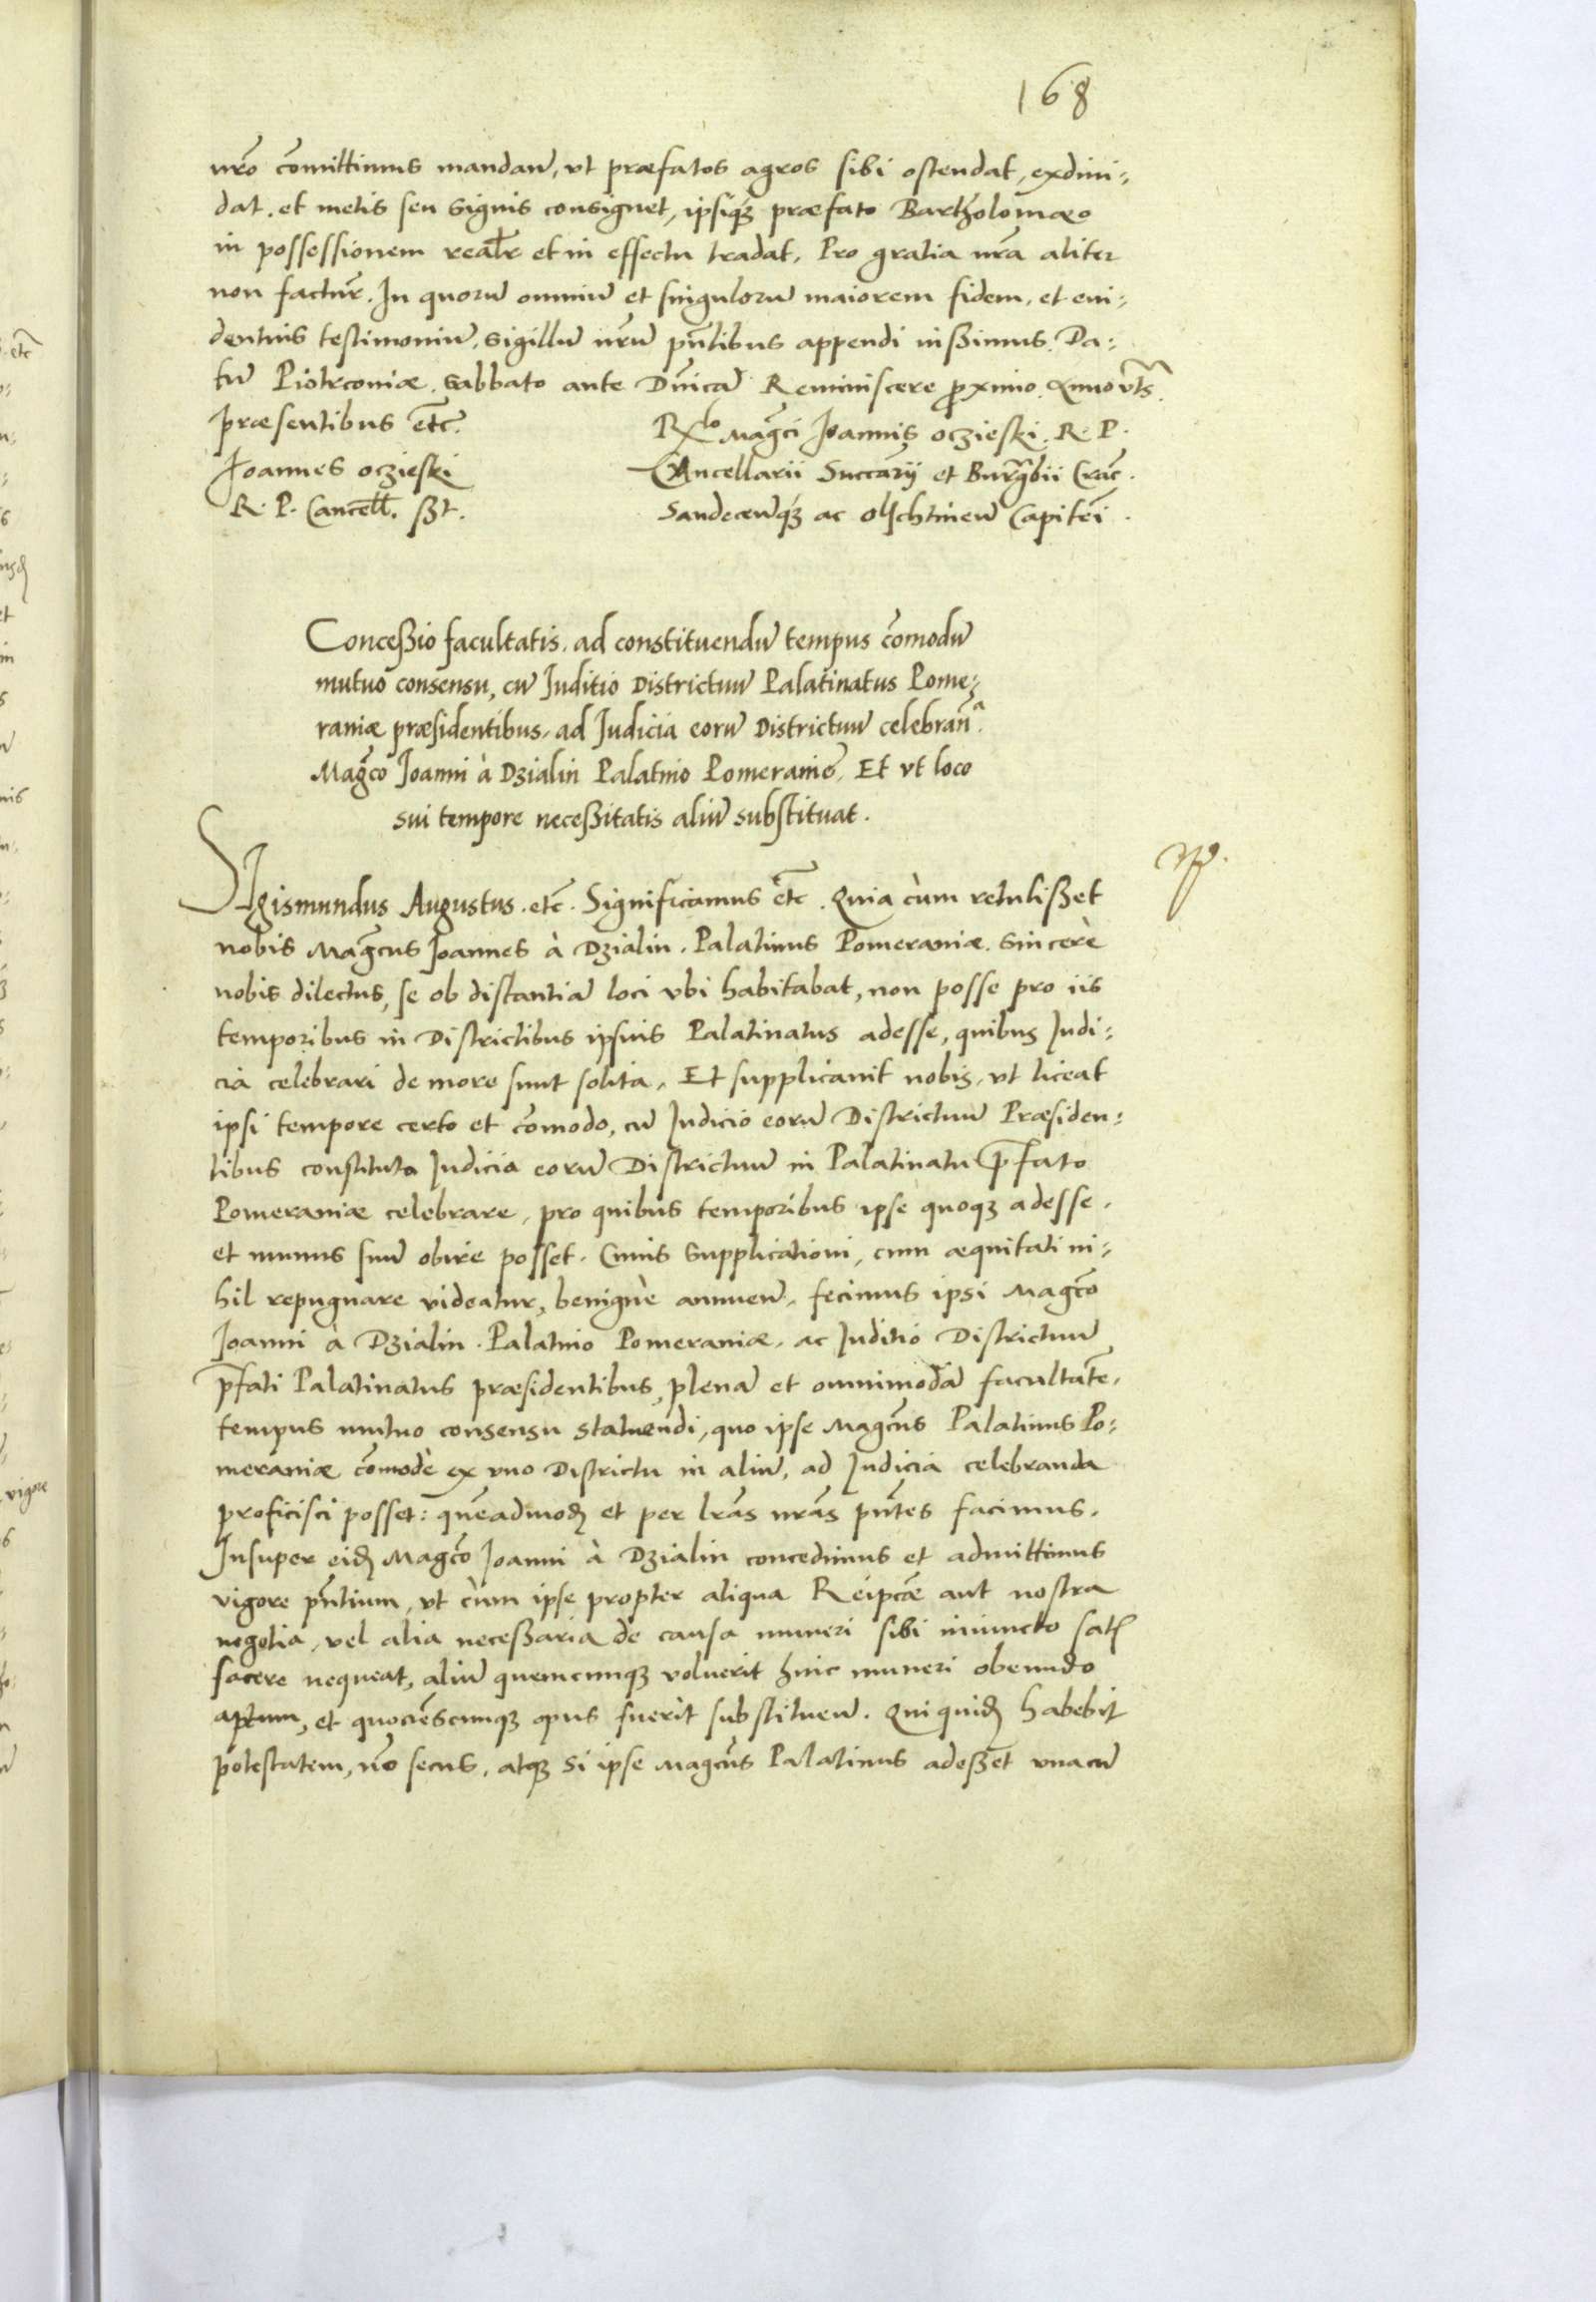 168
nr̃o com̃ittimus mandan̄, vt præfatos agros sibi ostendat, exdiui-
dat, et metis seu signis consignet, ipsiq̃ȝ præfato Bartholomæo
in possessionem realr̃ et in effectu tradat, Pro gratia nr̃a aliter
non factur̃. In quorū omniū et singulorū maiorem fidem, et eui-
dentius testimoniū, sigillū nr̃um pñtibus appendi iußimus. Da-
tū Piotrconiæ, Sabbato ante Dñicā Reminiscere proximo. Anno vt s̃.
Præsentibus etc̃.
Joannes oczieski
R. P. Cancell̃. sßt.
Rx̃lo Mag̃ci Joannis oczieski. R. P.
Cancellarii Succar̃ij et Burg̃bii Crac̃.
Sandecen̄q̃ȝ ac olschtinen̄ Capitẽi.
Conceßio facultatis, ad constituendū tempus com̃odū
mutuo consensu, cū Juditio Districtuū Palatinatus Pome-
raniæ præsidentibus, ad Judicia eorū Districtuū celebran̄ᵃ.
Mag̃co Joanni à Dzialin Palatino Pomeranię, Et vt loco
sui tempore neceßitatis aliū substituat.
Sigismundus Augustus. etc̃. Significamus etc̃. Quia cùm retulißet
nobis Mag̃cus Joannes à Dzialin. Palatinus Pomeraniæ. sincerè
nobis dilectus, se ob distantiā loci vbi habitabat, non posse pro iis
temporibus in Districtibus ipsius Palatinatus adesse, quibus Judi-
cia celebrari de more sunt solita, Et supplicauit nobis, vt liceat
ipsi tempore certo et com̃odo, cū Judicio eorū Districtuū Præsiden-
tibus constituto Judicia eorū Districtuū in Palatinatu p̃fato
Pomeraniæ celebrare, pro quibus temporibus ipse quoqȝ adesse,
et munus suū obire posset. Cuius supplicationi, cum æquitati ni-
hil repugnare videatur, benignè annuen̄, fecimus ipsi Mag̃co
Joanni à Dzialin. Palatino Pomeraniæ, ac Juditio Districtuū
p̃fati Palatinatus præsidentibus, plenā et omnimodā facultatẽ,
tempus mutuo consensu statuendi, quo ipse Mag̃cus Palatinus Po-
meraniæ com̃odè ex vno Districtu in aliū, ad Judicia celebranda
proficisci posset: quẽadmodȝ et per lr̃as nr̃as pñtes facimus.
Insuper eidȝ Mag̃co Joanni à Dzialin concedimus et admittimus
vigore pñtium, vt cùm ipse propter aliqua Reipcæ̃ aut nostra
negotia, vel alia neceßaria de causa muneri sibi iniuncto satȝ
facere nequeat, aliū quemcunqȝ voluerit huic muneri obeundo
aptum, et quociẽscunqȝ opus fuerit substituen̄. Qui quidȝ habebit
potestatem, nõ secus, atqȝ si ipse Mag̃cus Palatinus adeßet vnacū